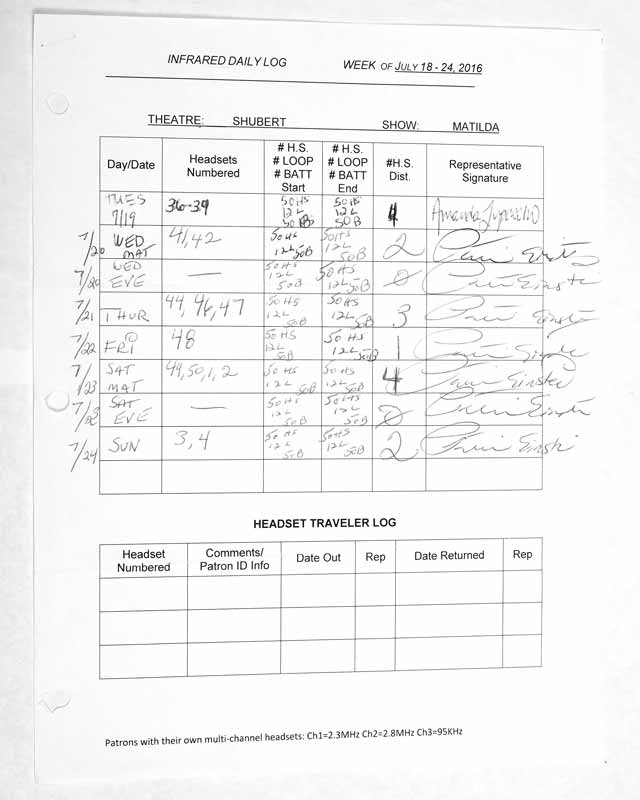 INFRARED DAILY LOG WEEK OF JULY 18 - 24, 2016
THEATRE: SHUBERT SHOW: MATILDA
Day/Date Headsets Numbered # H.S. # LOOP # BATT Start # H.S. # LOOP # BATT End #H.S. Dist. Representative Signature
TUES 7/19 36-39 50HS 12L 50B 50HS 12L 50B 4 Amanda
7/20 WED MAT 41,42 50HS 12L 50B 50HS 12L 50B 2
7/20 WED EVE — 50HS 12L 50B 50HS 12L 50B 0
7/21 THUR 44, 46, 47 50HS 12L 50B 50HS 12L 50B 3
7/22 FRI 48 50HS 12L 50B 50HS 12L 50B 1
7/23 SAT MAT 49,50,1,2 50HS 12L 50B 50HS 12L 50B 4
7/23 SAT EVE — 50HS 12L 50B 50HS 12L 50B 0
7/24 SUN 3,4 50HS 12L 50B 50HS 12L 50B 2
HEADSET TRAVELER LOG
Headset Numbered Comments/ Patron ID Info Date Out Rep Date Returned Rep
Patrons with their own multi-channel headsets: Ch1=2.3MHz Ch2=2.8MHz Ch3=95KHz